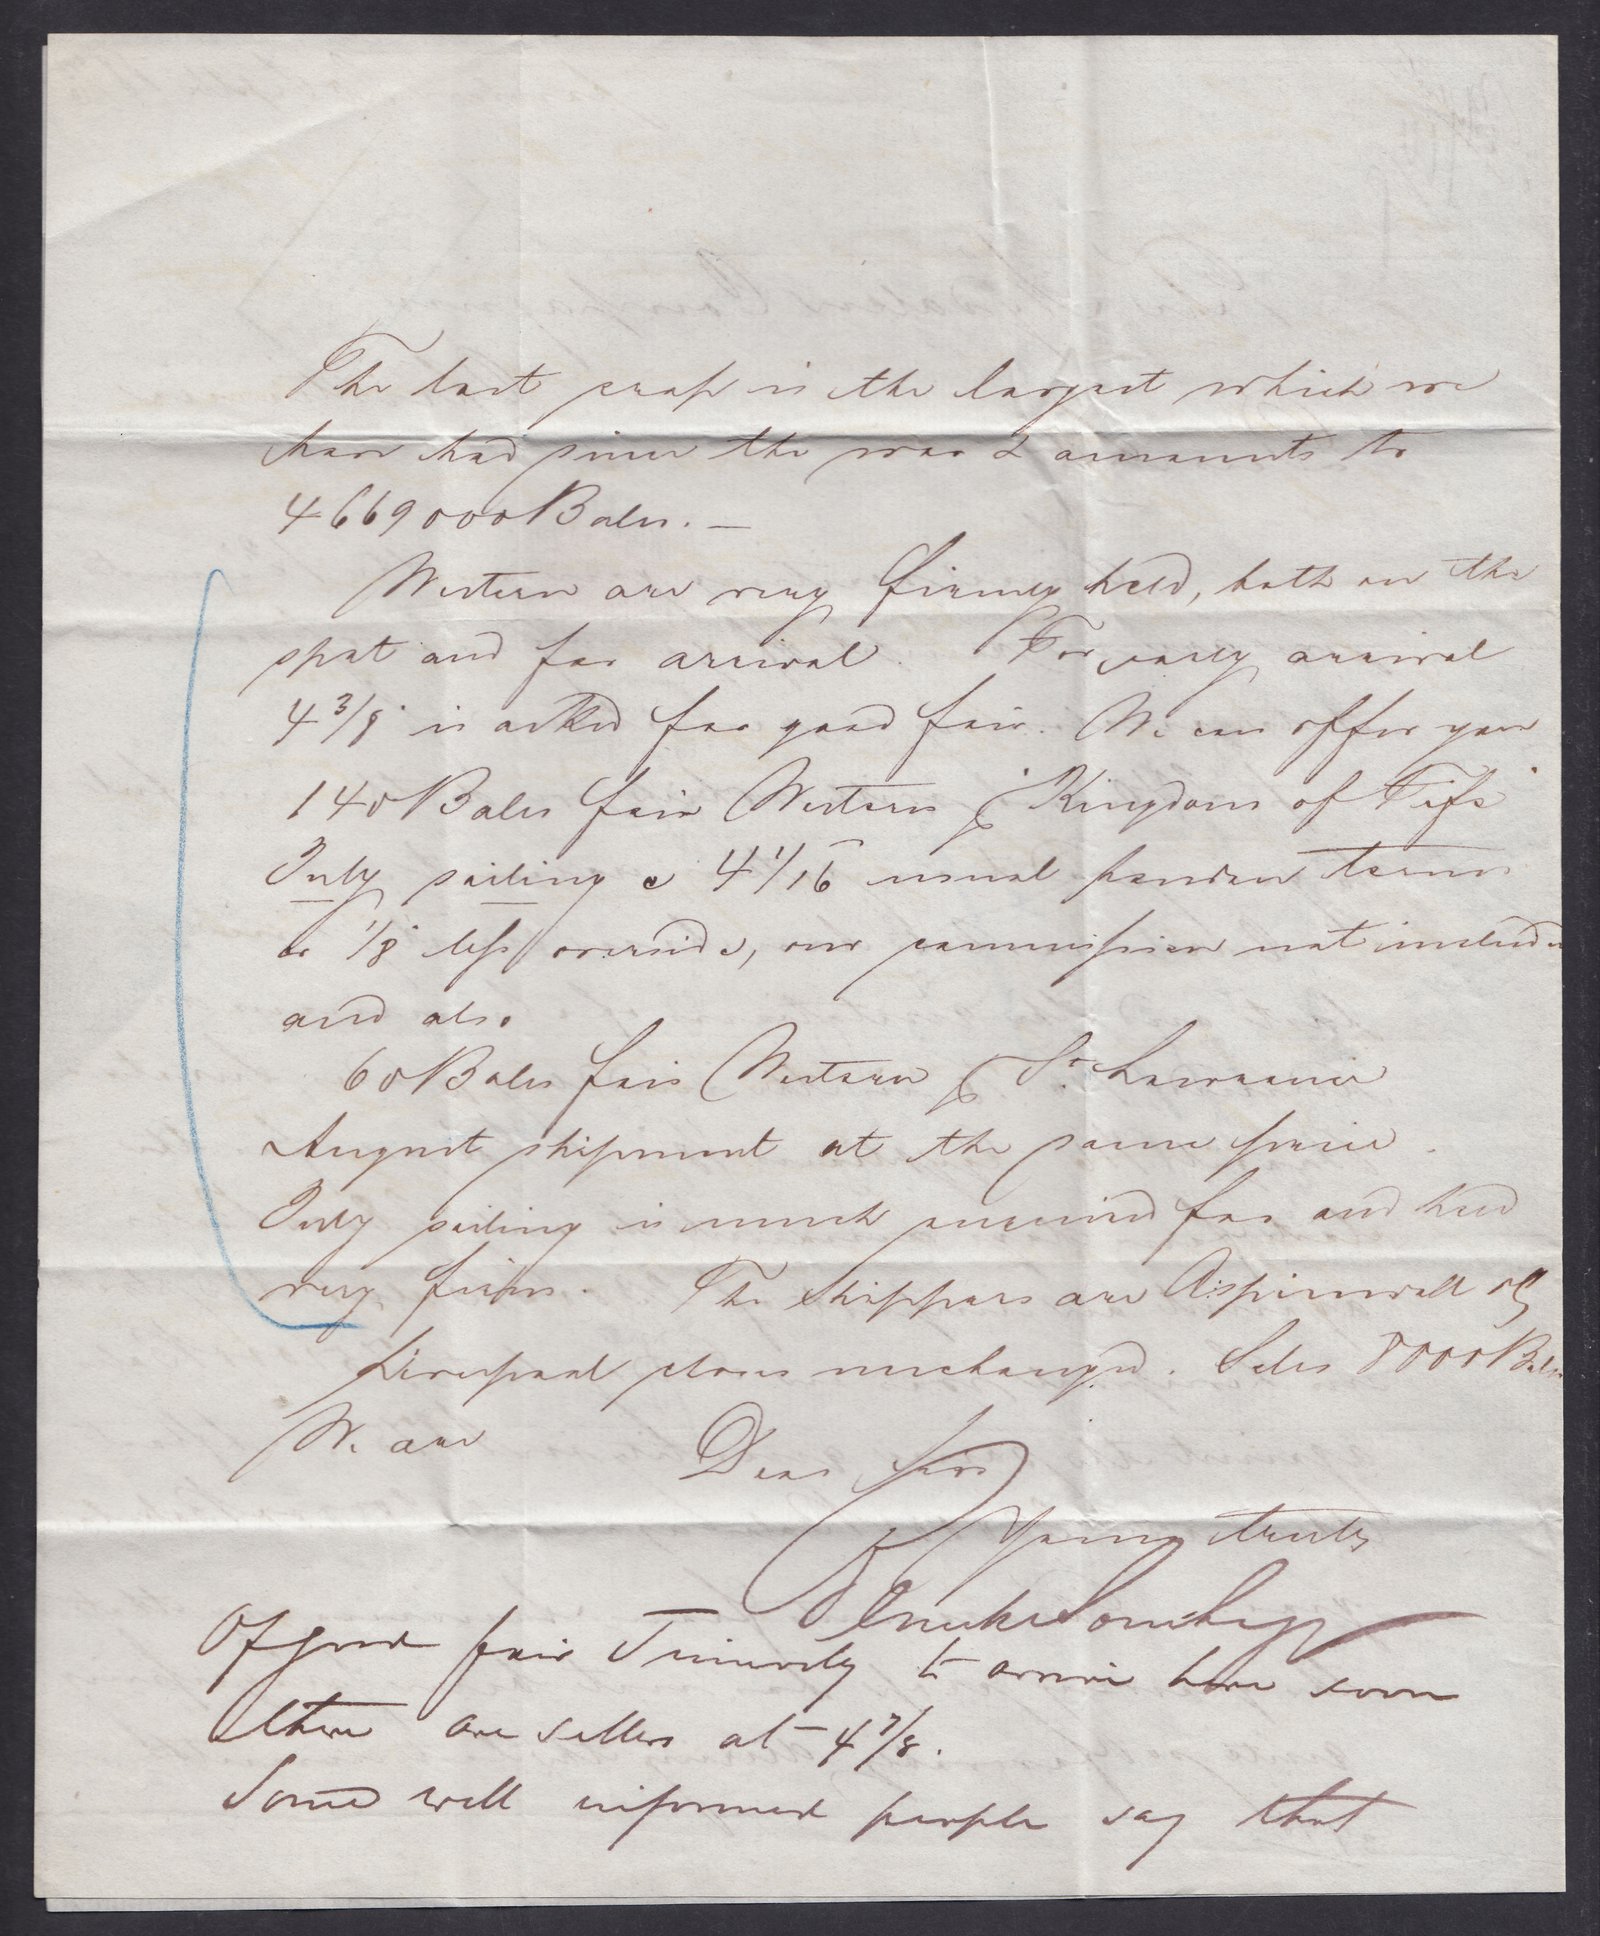 The last crop is the largest which we
have had since the war & amounts to
4669000 Bales. —
Western are very firmly held, both on the
spot and for arrival. For early arrival
4 3/8 is asked for good fair. We can offer you
140 Bales fair Western p "Kingdom of Fife"
July sailing a 4 1/16 usual London terms
or 1/8 less overside, our commission not included
and also
60 Bales fair Western p St. Lawrence
August shipment at the same price.
July sailing is much enquired for and held
very firm. The shippers are Aspinwall &
Liverpool closes unchanged. Sales 8000 Bales
We are Dear Sirs
Yours truly
Of good fair Tinnevelly to arrive here soon
there are sellers at 4 7/8.
Some well informed people say that